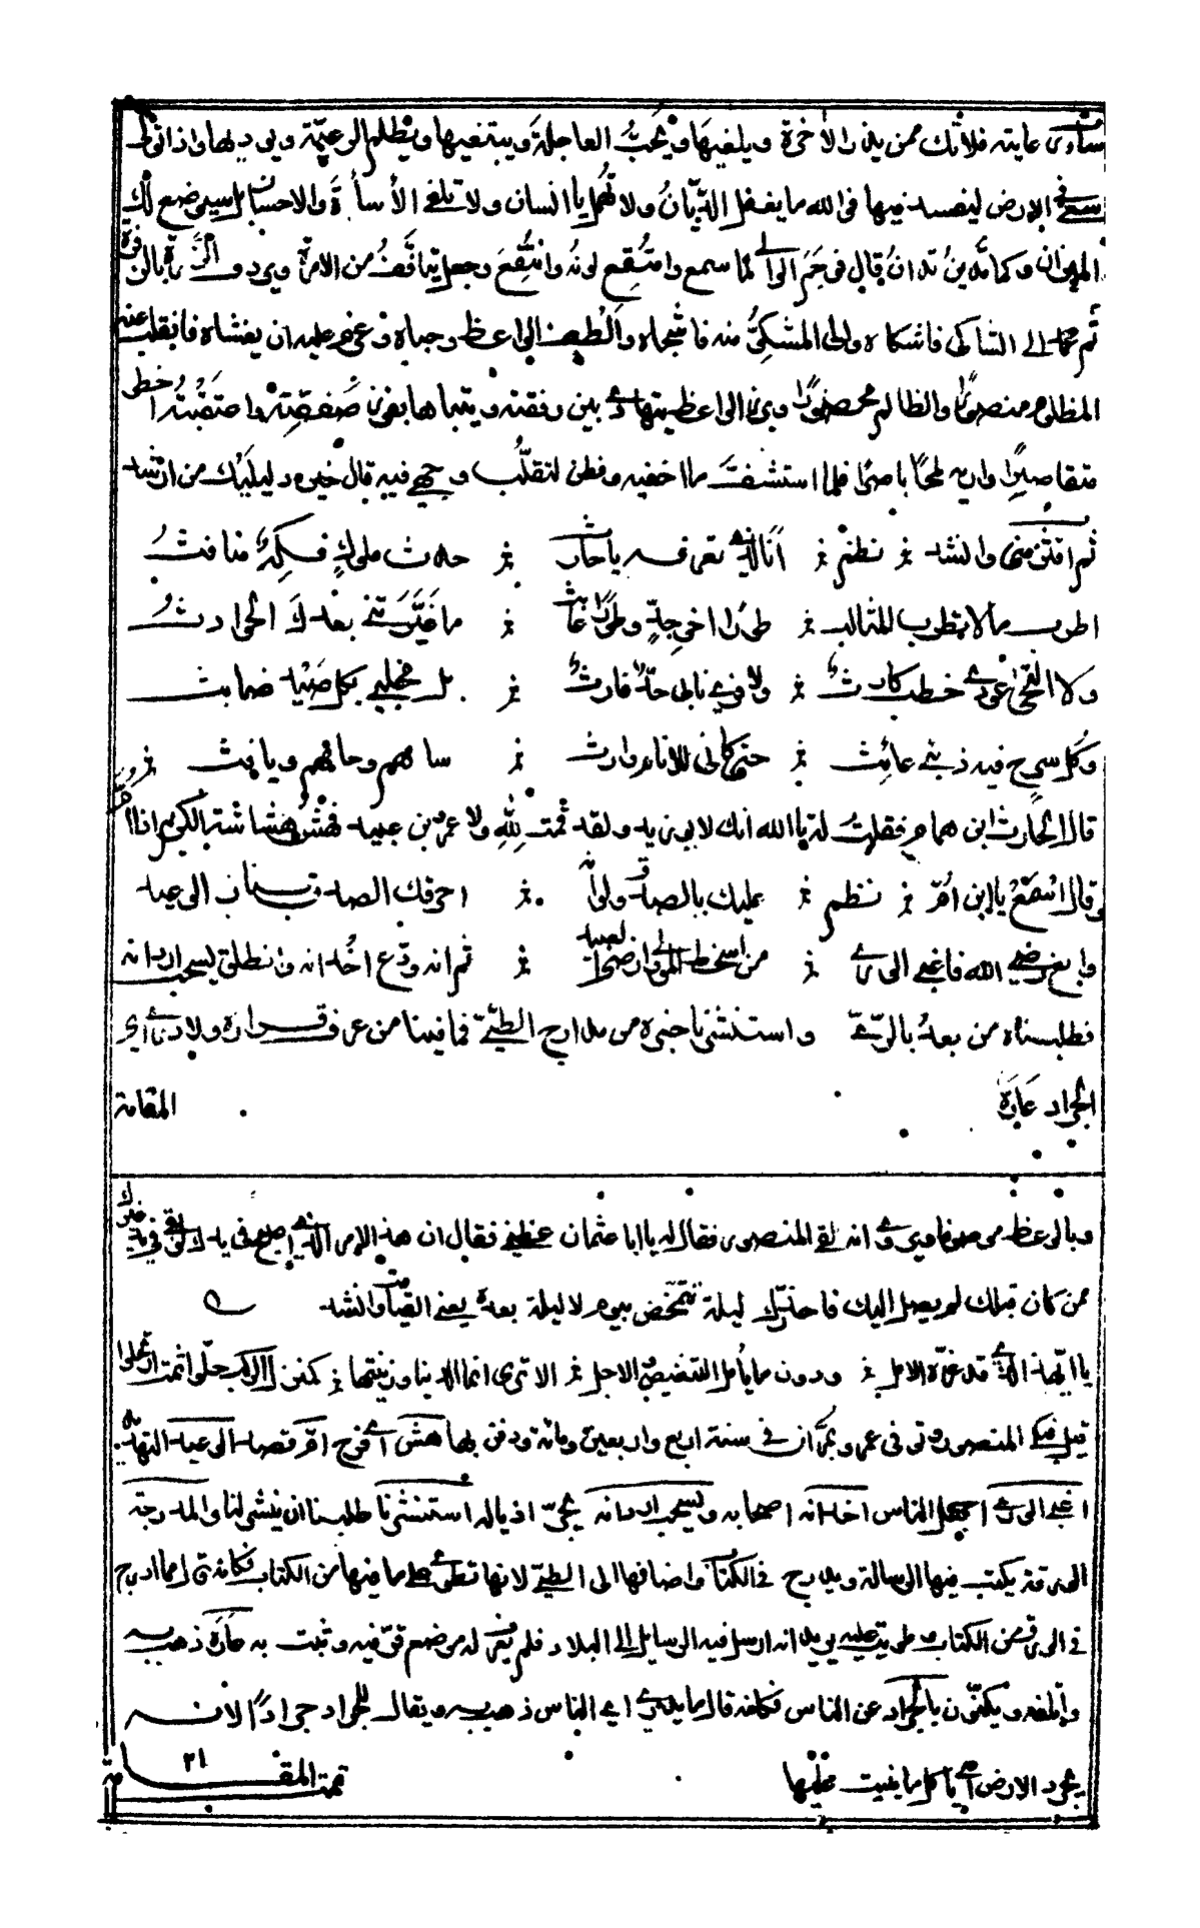 عايته فلاتك ممن يذر الآخرة ويلغيها ويحبّ العاجلة ويبتغيها ويظلم الرعيّة ويوذيها واذا تولّى
سعى في الارض ليفسد فيها فوالله ما يغفل الديّانُ ولا تُهمَل يا انسان ولا تلغى الأسأةَ والاحسان بل سيوضع لك
الميزان وكما تَدينُ تدانُ قال فوجَمَ الوالي لما سمع وامتُقِع لونُه وانتُقِعَ وجعل يتأفّفُ من الامرة ويردف الزفرة بالزفرة
ثم عمد الى الشاكي فاشكاه والى المشكوّ منه فاشجاه والطف الواعظ وحباه وعزم عليه ان يغشاه فانقلب عنه
المظلوم منصورًا والظالم محصورًا وبرز الواعظ يتهادى بين رفقته ويتباها بفوز صَفقتِهْ واعتقبتُه اخطو
متقاصِرًا واريه لمحًا باصرًا فلما استشفّ ما اخفيه وفطن لتقلّب وجهي فيه قال خير دليليك من ارشد
ثم اقترب مني وانشد نظم أنا الذي تعرفه يا حارث حدث ملوكٍ فكِهٌ منافثُ
اطرب ما لا تطرب المثالث طورًا اخو جدٍّ وطورًا عابث ما غيَّرَتني بعدَكَ الحوادثُ
ولا التحى عودي خطب كارثُ ولا فرى نابي حدٌّ فارثُ بل مخلبي بكل صيد ضابث
وكل سرح فيه ذئبي عائث حتى كاني للانام وارث سامهم وحامهم ويافث
قال الحارث ابن همام فقلت له تالله انك لابو زيد ولقد قمت لله ولا عمرو بن عبيد فهشّ هشاشة الكريم اذا أمّ
وقال اسمع يا ابن امّ نظم عليك بالصدق ولو انه احرقك الصدق بنار الوعيد
وابغ رضى الله فاغبى الورى من اسخط المولى وارضى العبيد ثم انه ودّع اخدانه وانطلق يسحب اردانه
فطلبناه من بعدُ بالريّ واستنشرنا خبره من مدارج الطيّ فما فينا من عرف قراره ولا درى اي
الجراد عارَهُ المقامة
وبالوعظ موصوفا وروى انه لقى المنصور فقال له يا ابا عثمان عظني فقال ان هذا الامر الذي اصبح في يدك لو بقى في يد غيرك
ممن كان قبلك لم يصل اليك فاحذرك ليلة تتمخّض بيوم لا ليلة بعده يعني القيمة وانشد
يا ايهذا الذي قد غرّه الامل ودون ما يأمل التنغيص والاجل الا ترى انما الدنيا وزينتها كمنزل الركب حلّوا ثمت ارتحلوا
فبكى المنصور وتوفى عمرو بمرّان في سنة اربع واربعين ومائة ودفن بها هش اي فرح امّ قصد الوعيد التهديد
اغبى الورى اجهل الناس اخدانه اصحابه ويسحب اردانه يجرّ اذياله استنشرنا طلبنا ان ينشر لنا والمدرجة
الورقة يكتب فيها الرسالة ويدرج في الكتاب واضافها الى الطيّ لانها تطوى على ما فيها من الكتاب
في الورق من الكتاب وطويت عليه يريد انه ارسل فيه الرسايل الى البلاد فلم يعرف له موضع قرّ فيه وثبت به عَارَهُ ذهب به
واتلفه ويكنّون بالجراد عن الناس فكانه قال ما يدري اي الناس ذهب به ويقال للجراد جرادًا لانه
يجرد الارض اي ياكل ما ينبت عليها تمت المقامة ٢١